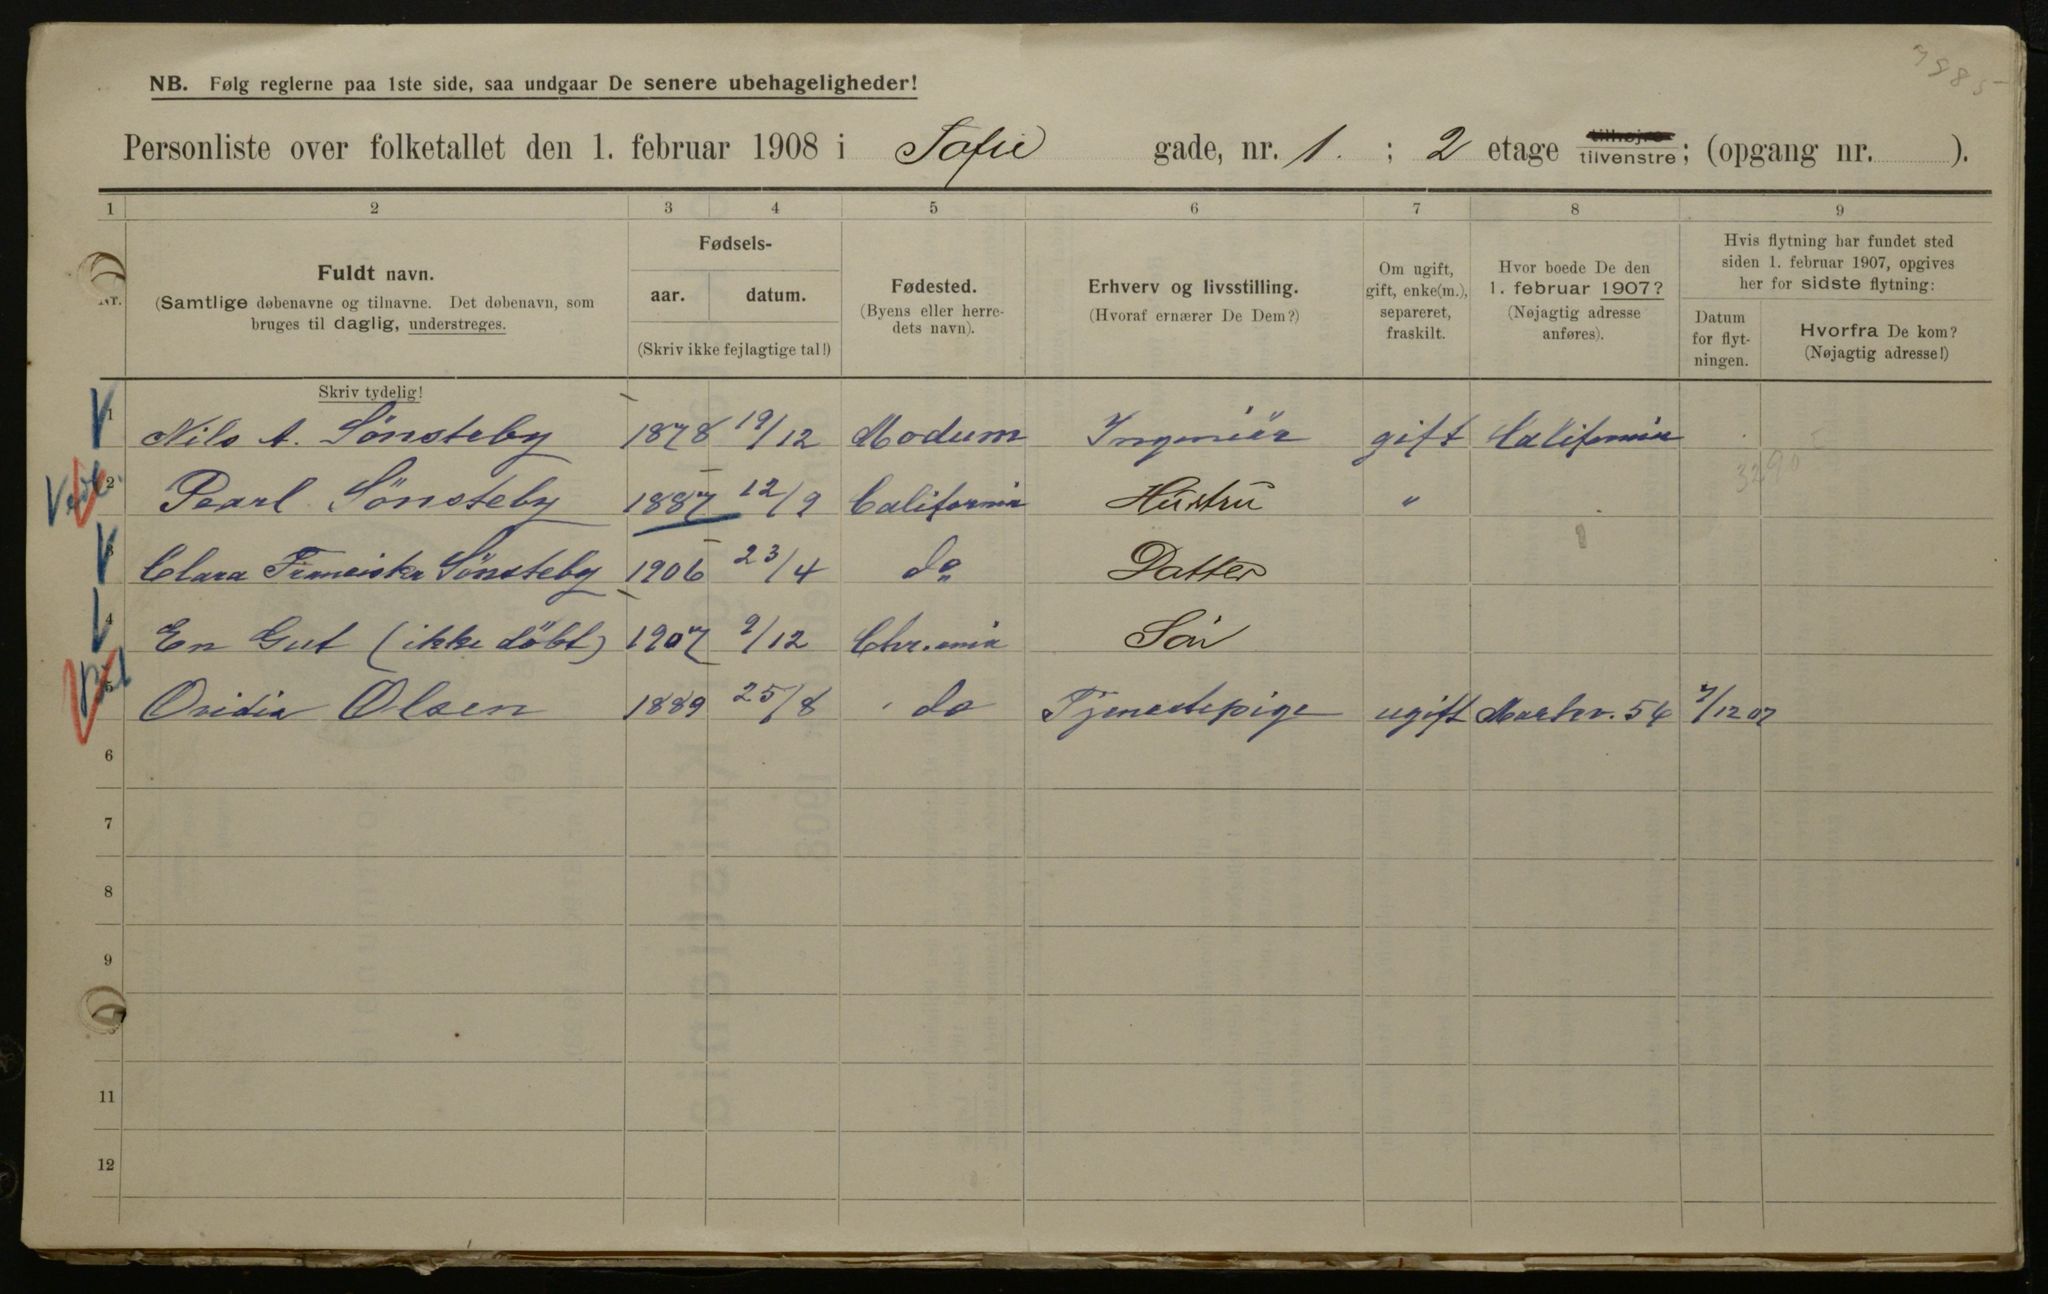 7985
NB. Følg reglerne paa 1ste side, saa undgaar De senere ubehageligheder!
Personliste over folketallet den 1. februar 1908 i Sofie gade, nr. 1. ; 2 etage tilhøjre tilvenstre; (opgang nr. ).
1 2 3 4 5 6 7 8 9
Nr.
Fuldt navn.
(Samtlige døbenavne og tilnavne. Det døbenavn, som
bruges til daglig, understreges.
Fødsels-
aar. datum.
(Skriv ikke fejlagtige tal!)
Fødested.
(Byens eller herre-
dets navn).
Erhverv og livsstilling.
(Hvoraf ernærer De Dem?)
Om ugift,
gift, enke(m.),
separeret,
fraskilt.
Hvor boede De den
1. februar 1907?
(Nøjagtig adresse
anføres).
Hvis flytning har fundet sted
siden 1. februar 1907, opgives
her for sidste flytning:
Datum
for flyt-
ningen.
Hvorfra De kom?
(Nøjagtig adresse!)
Skriv tydelig!
1 Nils A. Sönsteby 1878 19/12 Modum Ingeniör gift California
3290
2 Pearl Sönsteby 1887 12/9 California Hustru "
3 Clara Franciska Sönsteby 1906 23/4 do Datter
4 En Gut (ikke döbt) 1907 9/12 Chr.ania Sön
5 Ovidia Olsen 1889 25/8 do Tjenestepige ugift Markv. 54 7/12 07
6
7
8
9
11
12